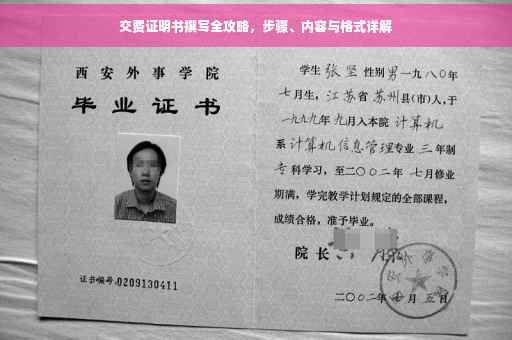 交费证明书撰写全攻略，步骤、内容与格式详解
西安外事学院
毕业证书
证书编号:0209130411
学生 张坚 性别 男 一九八〇年
七月生，江苏省 苏州县(市)人,于
一九九九年 九月入本院 计算机
系 计算机信息管理专业 三 年制
专 科学习，至二〇〇二年 七月修业
期满，学完教学计划规定的全部课程，
成绩合格，准予毕业。
院 长
二〇〇二年 月 五 日